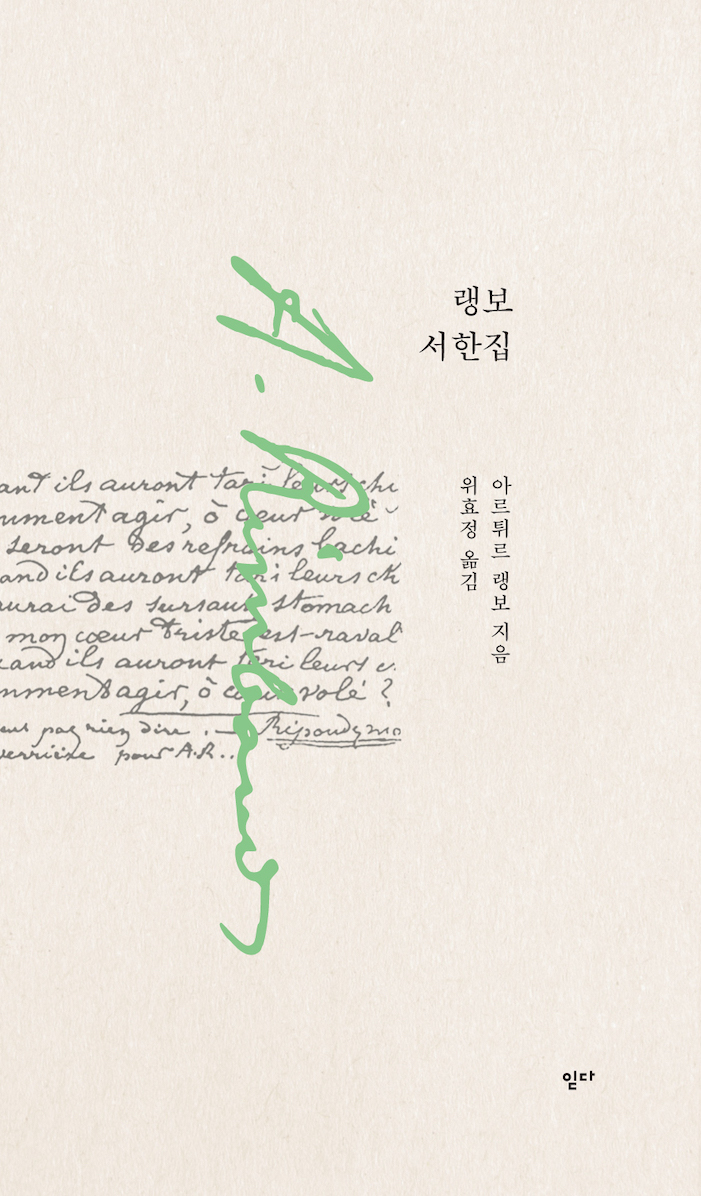 랭보
서한집
아르튀르 랭보 지음
위효정 옮김
A. Rimbaud
ant ils auront tari leurs chi
mment agir, ô cœur volé
seront des refrains bachi
and ils auront tari leurs ch
aurai des sursauts stomach
mon cœur triste est raval
and ils auront tari leurs c
mment agir, ô cœur volé ?
pas rien dire. — Répondez mo
derrière pour A.R..
읻다